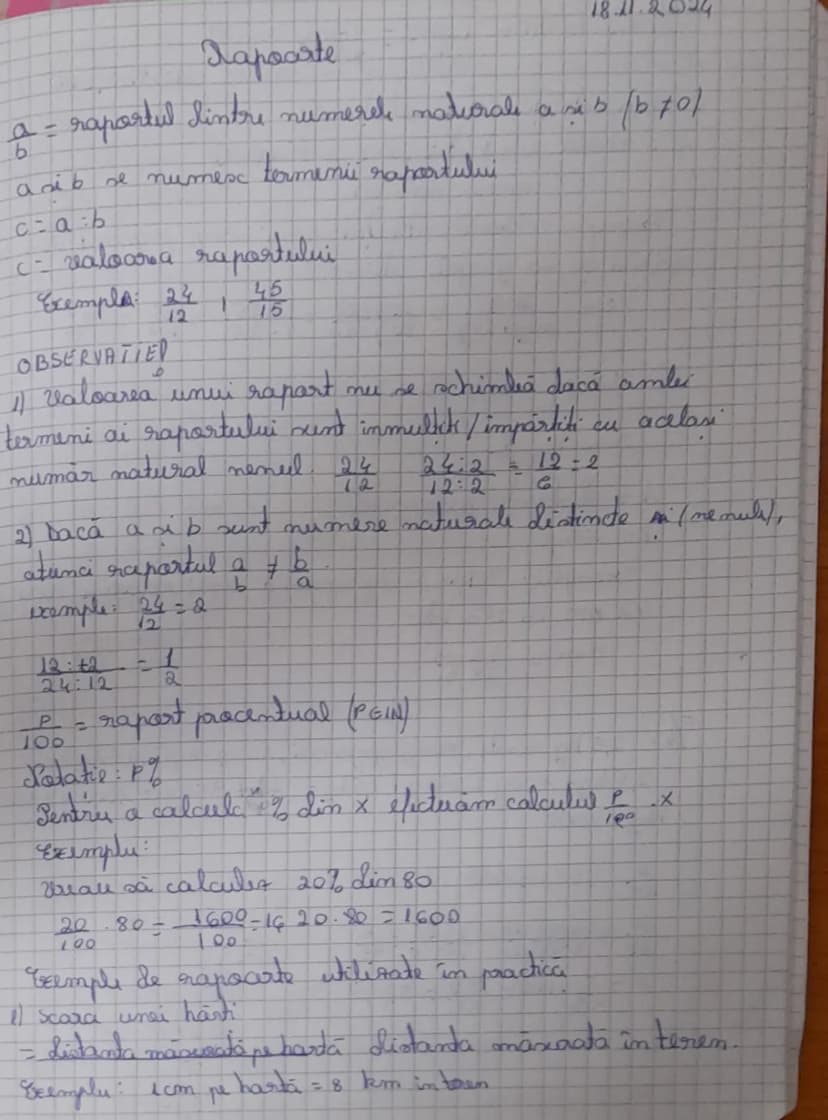 18.11.2024
Rapoarte
a/b = raportul dintre numerele naturale a și b (b ≠ 0)
a și b se numesc termenii raportului
c = a : b
c = valoarea raportului
Exemple: 24/12 , 45/15
OBSERVAȚIE
1) Valoarea unui raport nu se schimbă dacă ambii
termeni ai raportului sunt înmulțiți / împărțiți cu același
număr natural nenul. 24/12 24:2/12:2 = 12/6 = 2
2) Dacă a și b sunt numere naturale distincte (nenule),
atunci raportul a/b ≠ b/a.
exemple: 24/12 = 2
12:12/24:12 = 1/2
p/100 = raport procentual (p∈N)
Notație: p%
Pentru a calcula % din x efectuăm calculul p/100 . x
Exemplu:
Vreau să calculez 20% din 80
20/100 . 80 = 1600/100 = 16 20 . 80 = 1600
Exemple de rapoarte utilizate în practică
1) scara unei hărți
= distanta măsurată pe hartă distanta măsurată în teren.
Exemplu: 1cm pe hartă = 8 km in teren